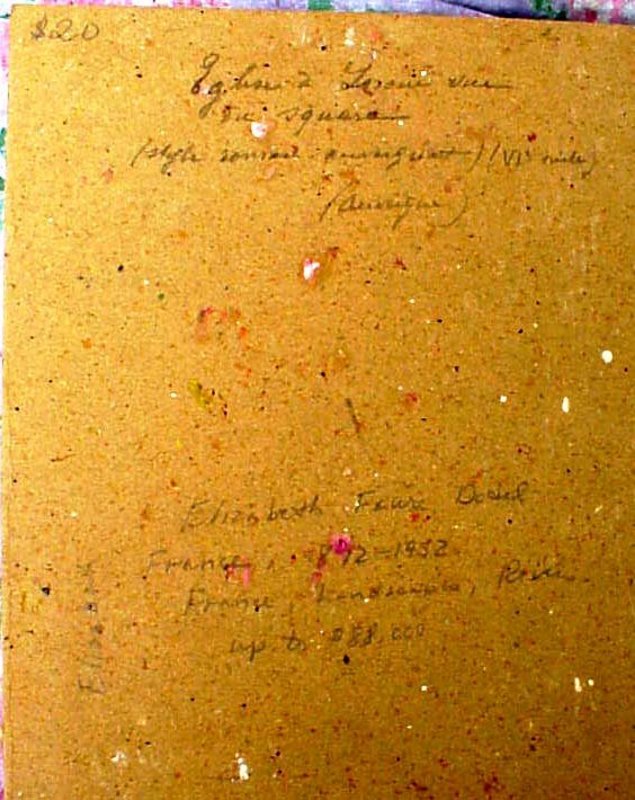 $20
Eglise à vue
du square
(style roman auvergnat) (VIe siècle)
(Auvergne)
Elizabeth Faure
France, 1872-1952
France, Landscapes,
up to $88,000
Elizabeth